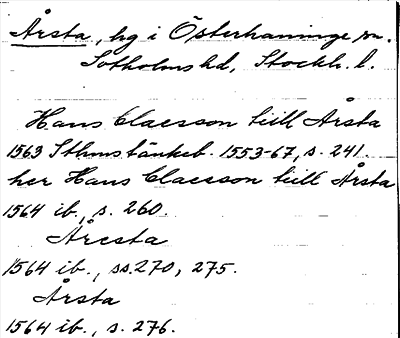 Årsta, hg i Österhaninge sn.
Sotholms hd, Stockh. l.
Hans Claesson till Årsta
1563 Sthms tänkeb. 1553-67, s. 241.
her Hans Claesson till Årsta
1564 ib., s. 260.
Årcsta
1564 ib., ss. 270, 275.
Årsta
1564 ib., s. 276.